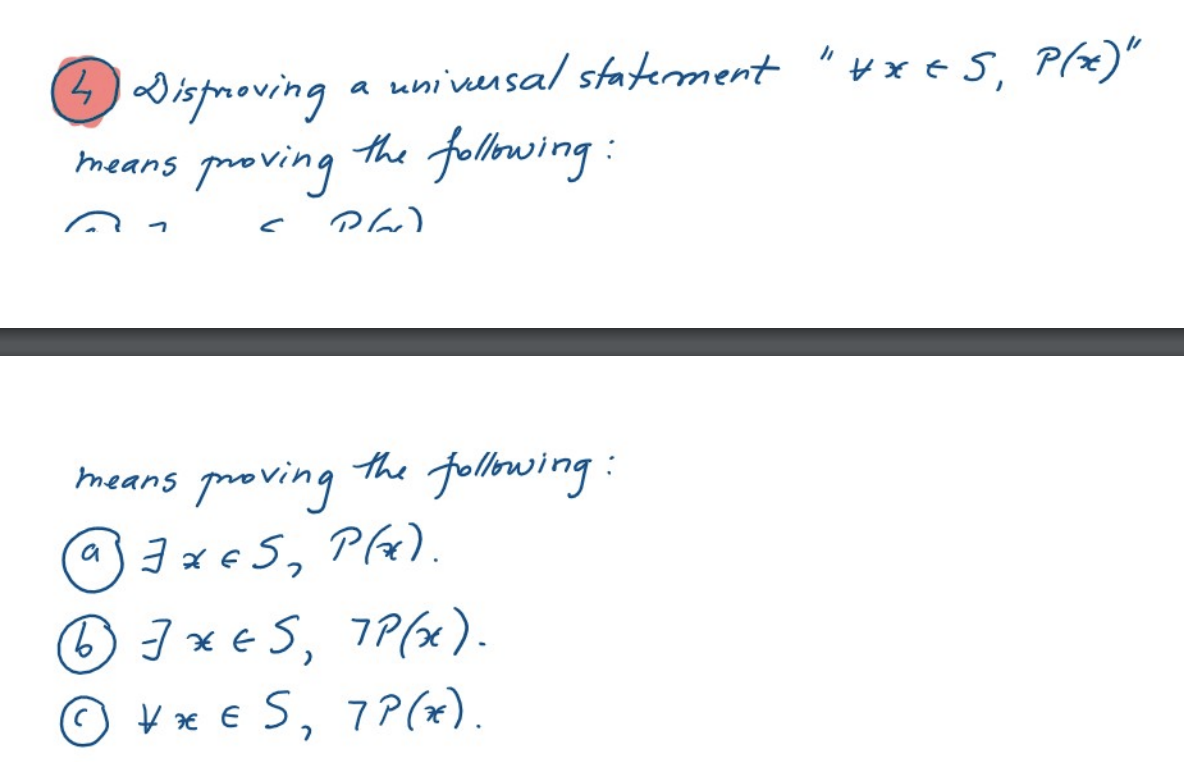 4 Disproving a universal statement "∀x ∈ S, P(x)"
means proving the following:
means proving the following:
a ∃x ∈ S, P(x).
b ∃x ∈ S, ¬P(x).
c ∀x ∈ S, ¬P(x).